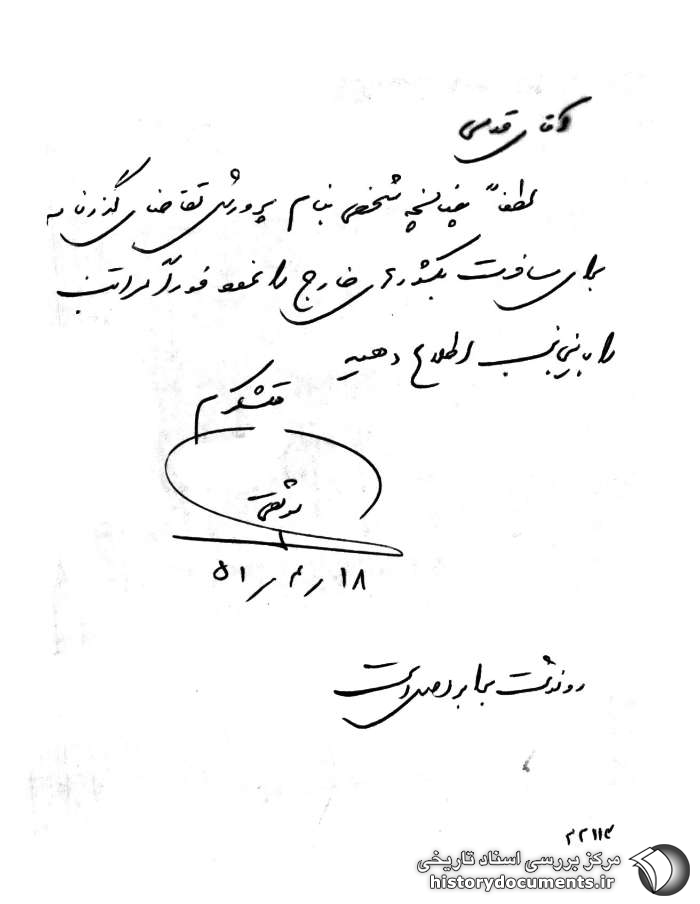 آقای قدسی
لطفاً چنانچه شخصی بنام پرورش تقاضای گذرنامه
برای مسافرت بکشورهای خارج را نمود فوراً مراتب
را باینجانب اطلاع دهید
متشکرم
۱۸/۴/۵۱
رونوشت برابر اصل است
۲۲۱۱۳
مرکز بررسی اسناد تاریخی
historydocuments.ir